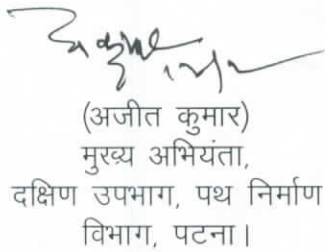 (अजीत कुमार)
मुख्य अभियंता,
दक्षिण उपभाग, पथ निर्माण
विभाग, पटना।